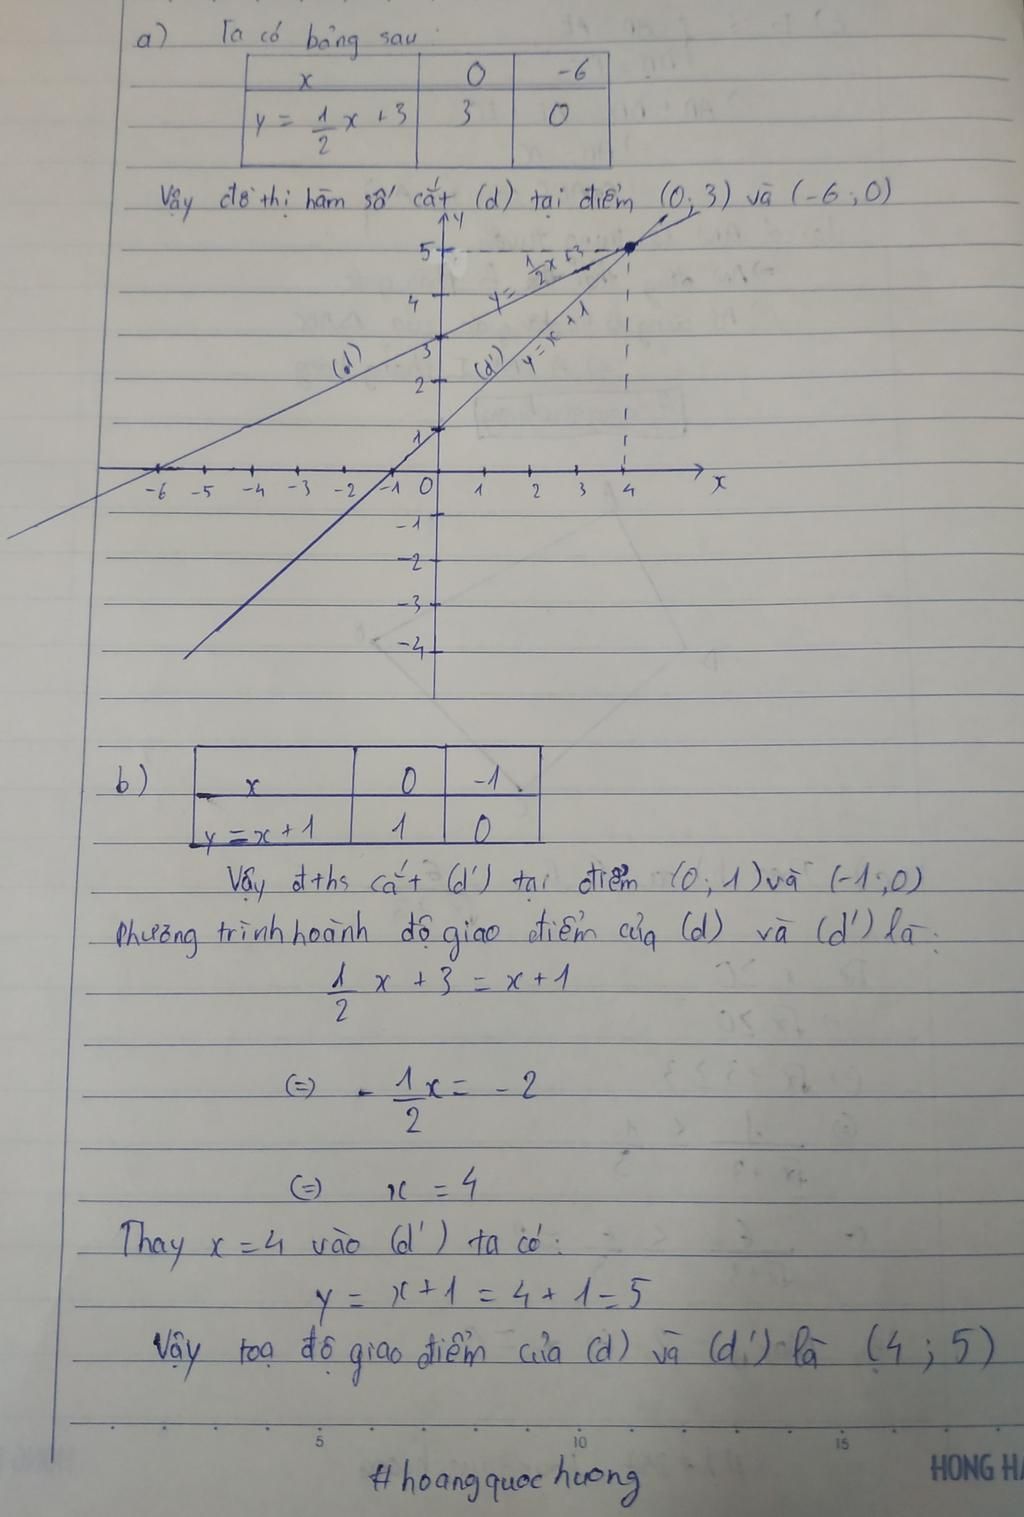 a) Ta có bảng sau:
x 0 -6
y = 1/2 x + 3 3 0
Vậy đồ thị hàm số cắt (d) tại điểm (0; 3) và (-6; 0)
y
5
y = 1/2 x + 3
4
y = x + 1
3
(d)
(d')
2
1
-6 -5 -4 -3 -2 -1 0 1 2 3 4 x
-1
-2
-3
-4
b) x 0 -1
y = x + 1 1 0
Vậy đths cắt (d') tại điểm (0; 1) và (-1; 0)
Phương trình hoành độ giao điểm của (d) và (d') là:
1/2 x + 3 = x + 1
(=) - 1/2 x = - 2
(=) x = 4
Thay x = 4 vào (d') ta có:
y = x + 1 = 4 + 1 = 5
Vậy toạ độ giao điểm của (d) và (d') là (4; 5)
5 10 15
HONG HA
#hoangquochuong